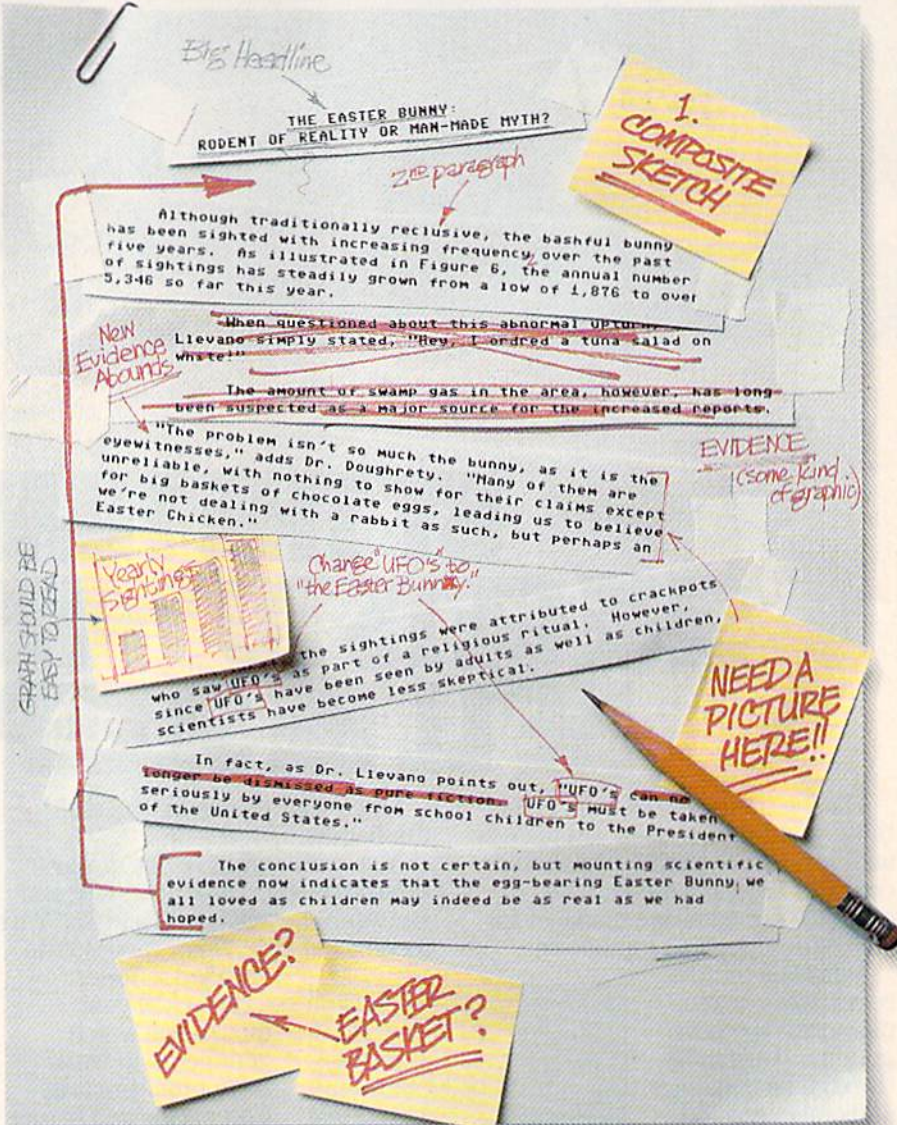 Big Headline
THE EASTER BUNNY:
RODENT OF REALITY OR MAN-MADE MYTH?
1.
COMPOSITE
SKETCH
2nd paragraph
Although traditionally reclusive, the bashful bunny
has been sighted with increasing frequency over the past
five years. As illustrated in Figure 6, the annual number
of sightings has steadily grown from a low of 1,876 to over
5,346 so far this year.
When questioned about this abnormal upturn,
Llevano simply stated, "Hey, I ordred a tuna salad on
white!"
New
Evidence
Abounds
The amount of swamp gas in the area, however, has long
been suspected as a major source for the increased reports.
"The problem isn't so much the bunny, as it is the
eyewitnesses," adds Dr. Doughrety. "Many of them are
unreliable, with nothing to show for their claims except
for big baskets of chocolate eggs, leading us to believe
we're not dealing with a rabbit as such, but perhaps an
Easter Chicken."
EVIDENCE
(some kind
of graphic)
GRAPH SHOULD BE
EASY TO READ
Yearly
Sightings
Change "UFO's" to
"the Easter Bunny."
the sightings were attributed to crackpots
who saw UFO's as part of a religious ritual. However,
since UFO's have been seen by adults as well as children,
scientists have become less skeptical.
NEED A
PICTURE
HERE!!
In fact, as Dr. Llevano points out, "UFO's can no
longer be dismissed as pure fiction. UFO's must be taken
seriously by everyone from school children to the President
of the United States."
The conclusion is not certain, but mounting scientific
evidence now indicates that the egg-bearing Easter Bunny we
all loved as children may indeed be as real as we had
hoped.
EVIDENCE?
EASTER
BASKET?